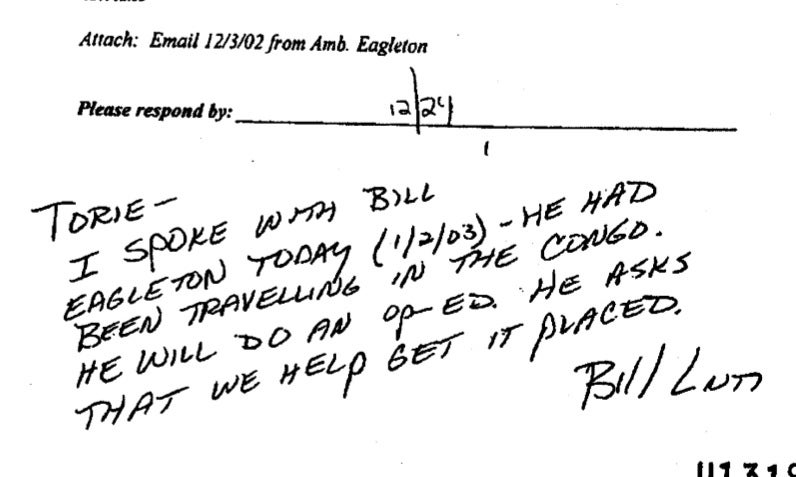 Attach: Email 12/3/02 from Amb. Eagleton
Please respond by: 12/24
TORIE-
I SPOKE WITH BILL
EAGLETON TODAY (1/2/03) - HE HAD
BEEN TRAVELLING IN THE CONGO.
HE WILL DO AN OP-ED. HE ASKS
THAT WE HELP GET IT PLACED.
Bill